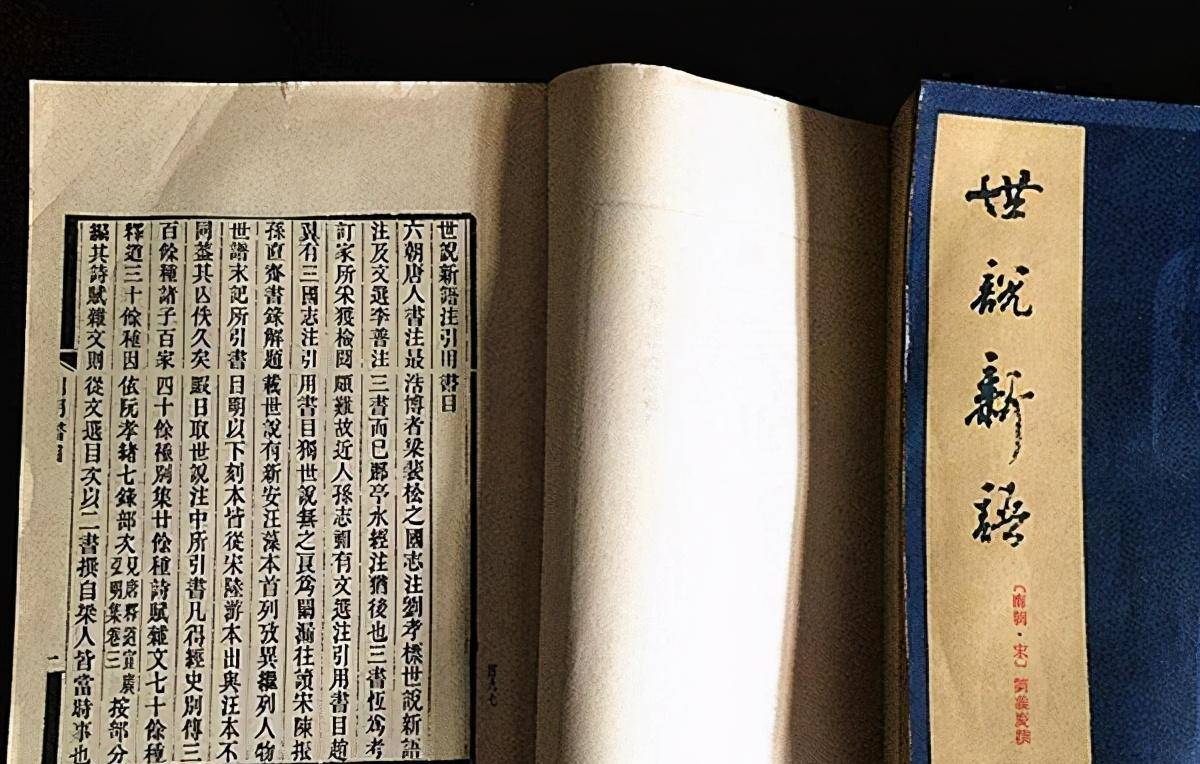 世說新語
〔南朝·宋〕劉義慶撰
世說新語注引用書目
六朝唐人書注最浩博者梁裴松之國志注劉孝標世說新語
注及文選李善注三書而已酈亭水經注猶後也三書恆爲考
訂家所采獲檢閱頗難故近人孫志祖有文選注引用書目趙
翼有三國志注引用書目獨世說無之良爲闕漏往讀宋陳振
孫直齋書錄解題載世說有新安汪藻本首列攷異繼列人物
世譜末記所引書目明以下刻本皆從宋陸游本出與汪本不
同葢其亡佚久矣暇日取世說注中所引書凡得經史別傳三
百餘種諸子百家四十餘種別集廿餘種詩賦雜文七十餘種
釋道三十餘種因依阮孝緒七錄部次見唐釋道宣廣弘明集卷三按部分
編其詩賦雜文則從文選目次以二書撰自梁人皆當時事也
一